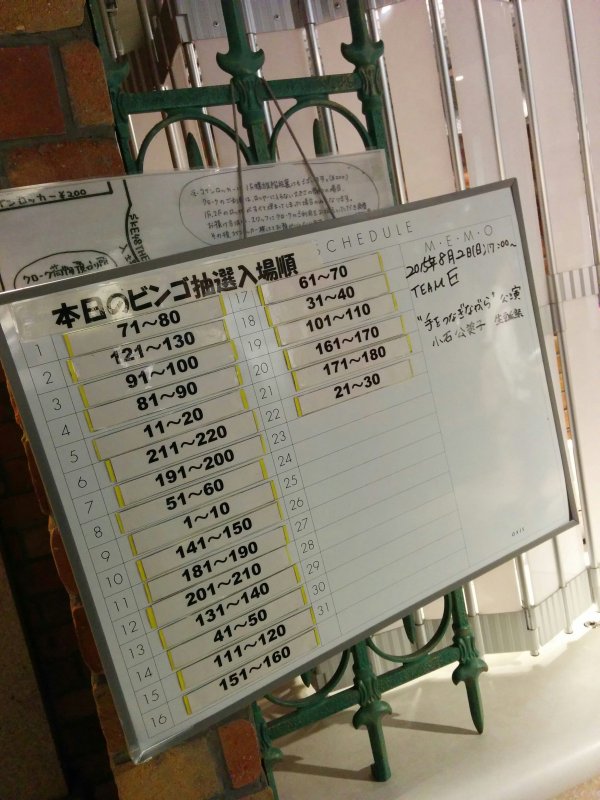 ンロッカー ¥200
SKE48 THE
本日のビンゴ抽選入場順
SCHEDULE
M・E・M・O
1 71〜80
2 121〜130
3 91〜100
4 81〜90
5 11〜20
6 211〜220
7 191〜200
8 51〜60
9 1〜10
10 141〜150
11 181〜190
12 201〜210
13 131〜140
14 41〜50
15 111〜120
16 151〜160
17 61〜70
18 31〜40
19 101〜110
20 161〜170
21 171〜180
22 21〜30
23
24
25
26
27
28
29
30
31
2015年8月2日(日)17:00〜
TEAM E
"手をつなぎながら" 公演
小石公美子 生誕祭
axis